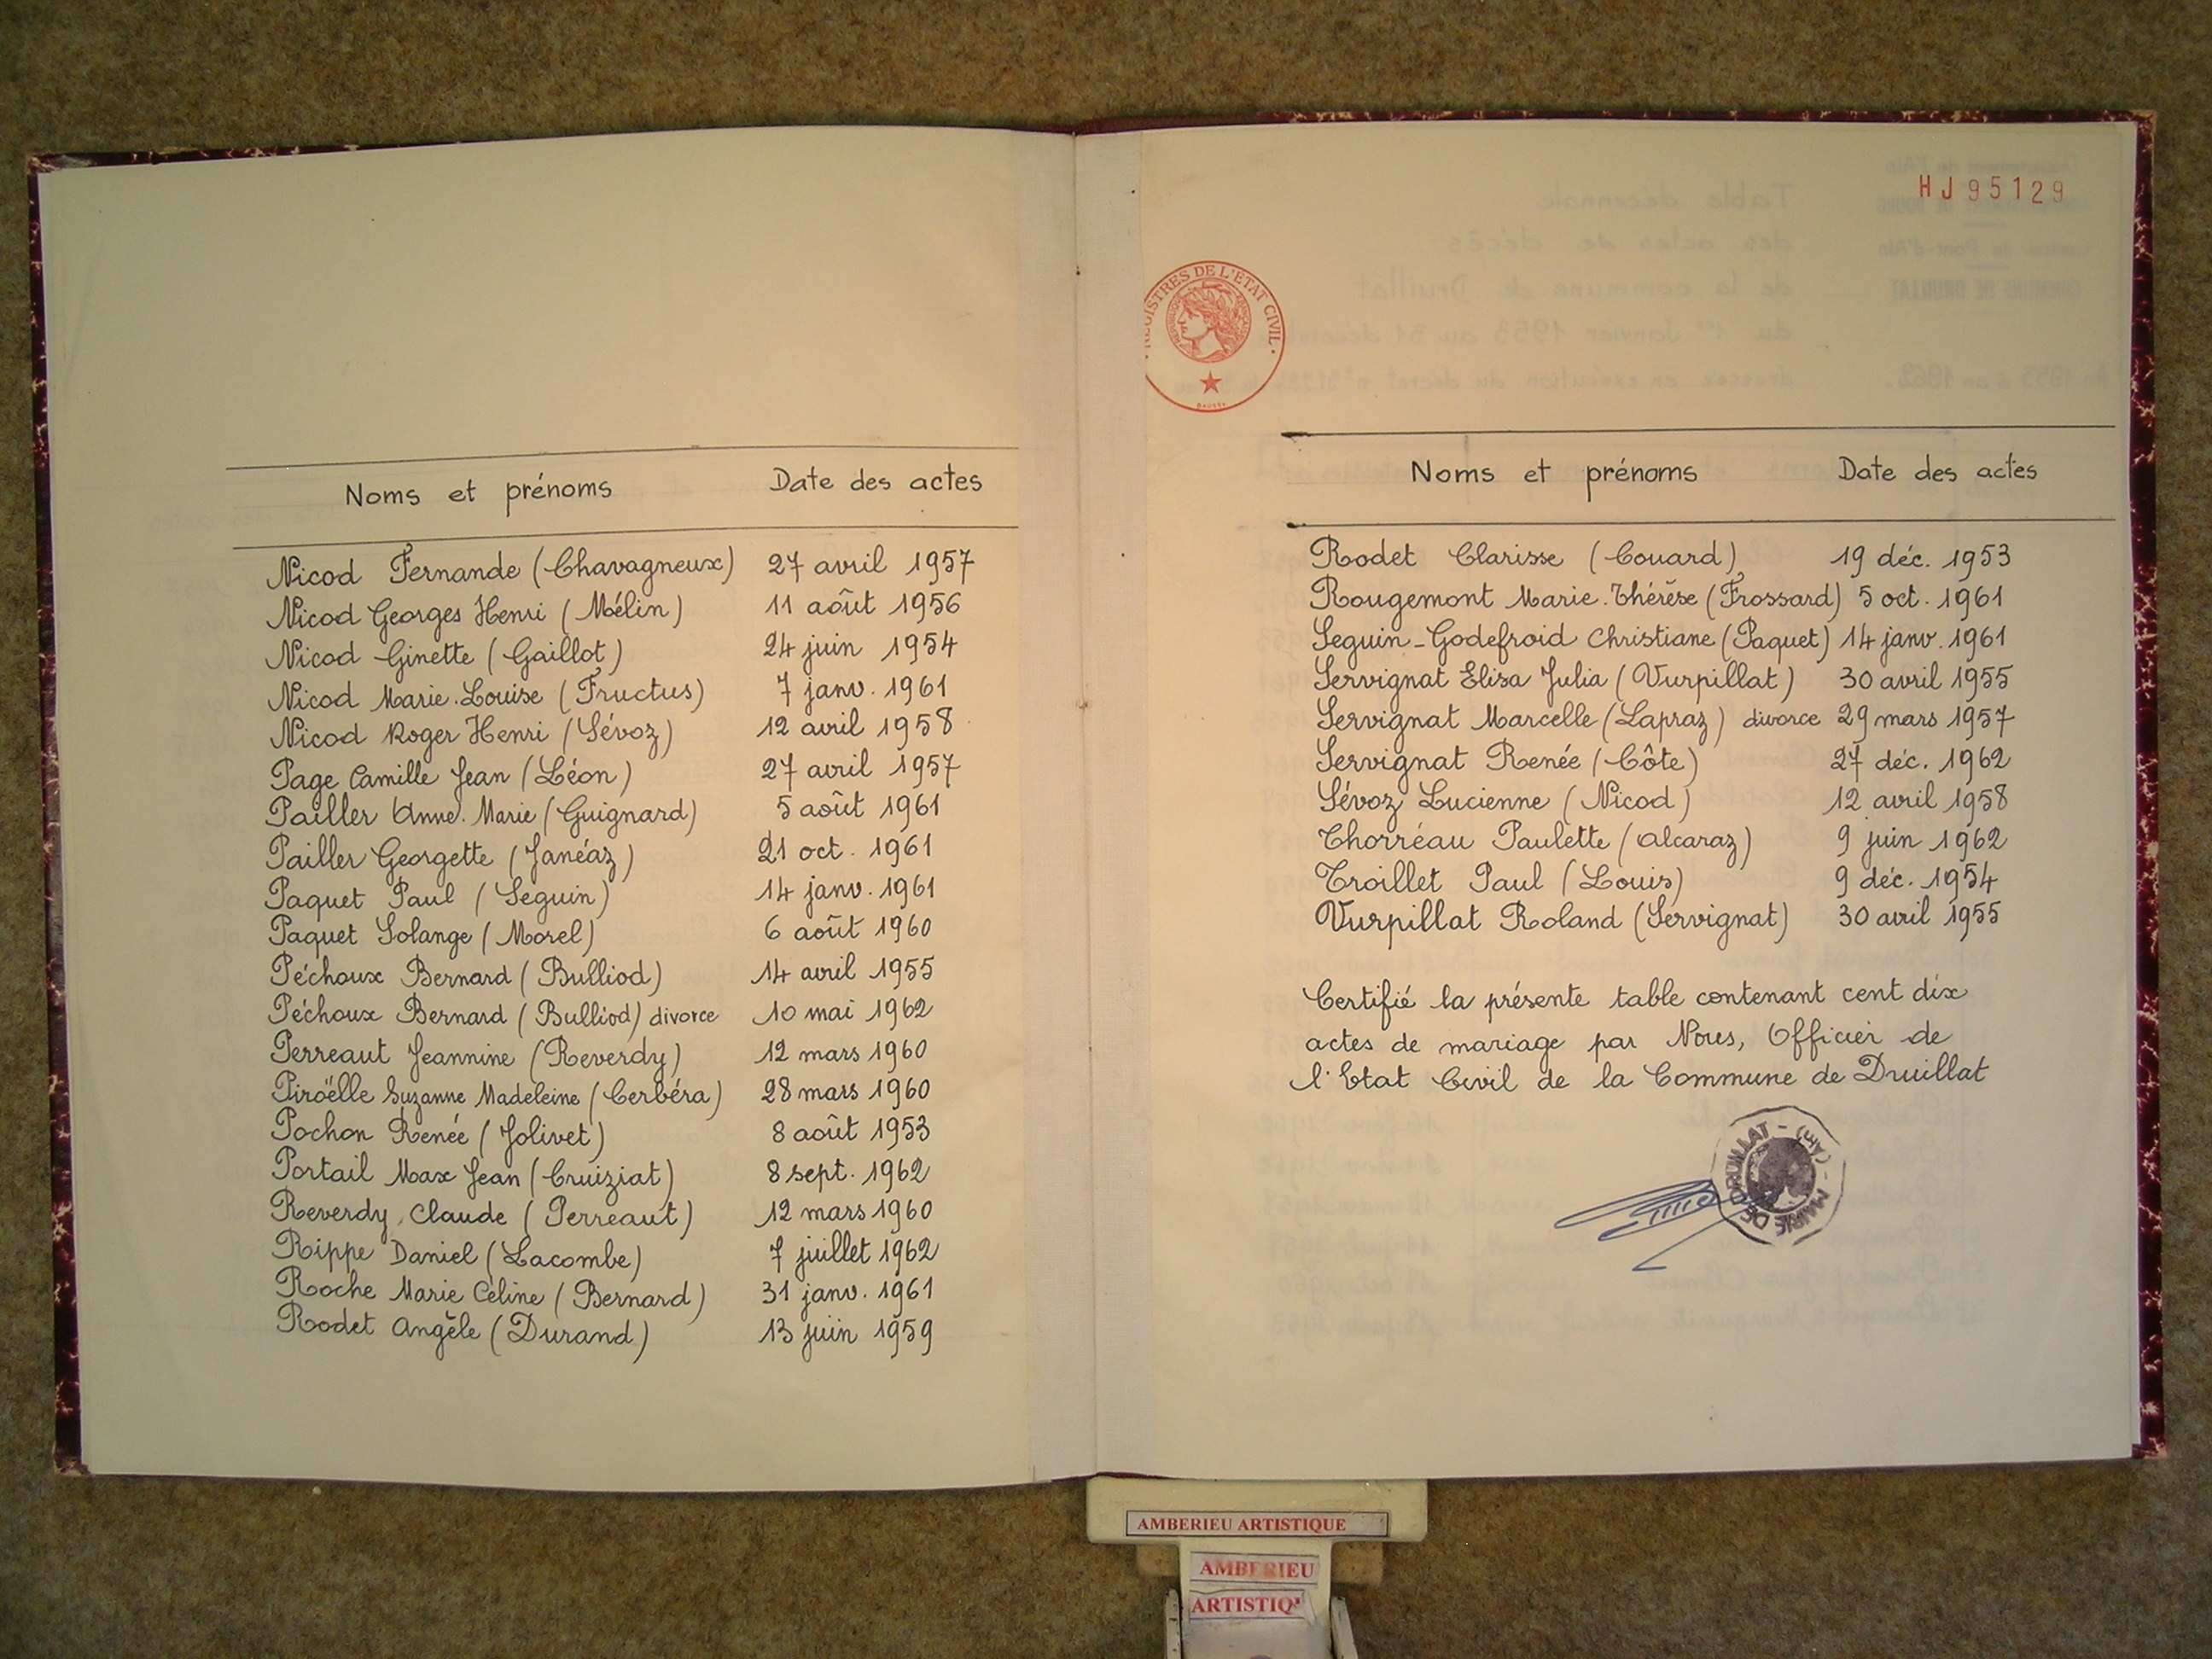 Noms et prénoms Date des actes
Nicod Fernande (Chavagneux) 27 avril 1957
Nicod Georges Henri (Mélin) 11 août 1956
Nicod Ginette (Gaillot) 24 juin 1954
Nicod Marie.Louise (Fructus) 7 janv. 1961
Nicod Roger Henri (Sévoz) 12 avril 1958
Page Camille Jean (Léon) 27 avril 1957
Pailler Anne.Marie (Guignard) 5 août 1961
Pailler Georgette (Janéaz) 21 oct. 1961
Paquet Paul (Seguin) 14 janv. 1961
Paquet Solange (Morel) 6 août 1960
Péchoux Bernard (Bulliod) 14 avril 1955
Péchoux Bernard (Bulliod) divorce 10 mai 1962
Perreaut Jeannine (Reverdy) 12 mars 1960
Piroëlle Suzanne Madeleine (Cerbéra) 28 mars 1960
Pochon Renée (Jolivet) 8 août 1953
Portail Max Jean (Cruiziat) 8 sept. 1962
Reverdy Claude (Perreaut) 12 mars 1960
Rippe Daniel (Lacombe) 7 juillet 1962
Roche Marie Céline (Bernard) 31 janv. 1961
Rodet Angèle (Durand) 13 juin 1959
HJ95129
REGISTRES DE L'ETAT CIVIL
Noms et prénoms Date des actes
Rodet Clarisse (Couard) 19 déc. 1953
Rougemont Marie.Thérèse (Frossard) 5 oct. 1961
Seguin-Godefroid Christiane (Paquet) 14 janv. 1961
Servignat Elisa Julia (Vurpillat) 30 avril 1955
Servignat Marcelle (Lapraz) divorce 29 mars 1957
Servignat Renée (Côte) 27 déc. 1962
Sévoz Lucienne (Nicod) 12 avril 1958
Thorréau Paulette (Alcaraz) 9 juin 1962
Troillet Paul (Louis) 9 déc. 1954
Vurpillat Roland (Servignat) 30 avril 1955
Certifié la présente table contenant cent dix
actes de mariage par Nous, Officier de
l'Etat Civil de la Commune de Druillat
MAIRIE DE DRUILLAT - (Ain) -
AMBERIEU ARTISTIQUE
AMBERIEU
ARTISTIQ